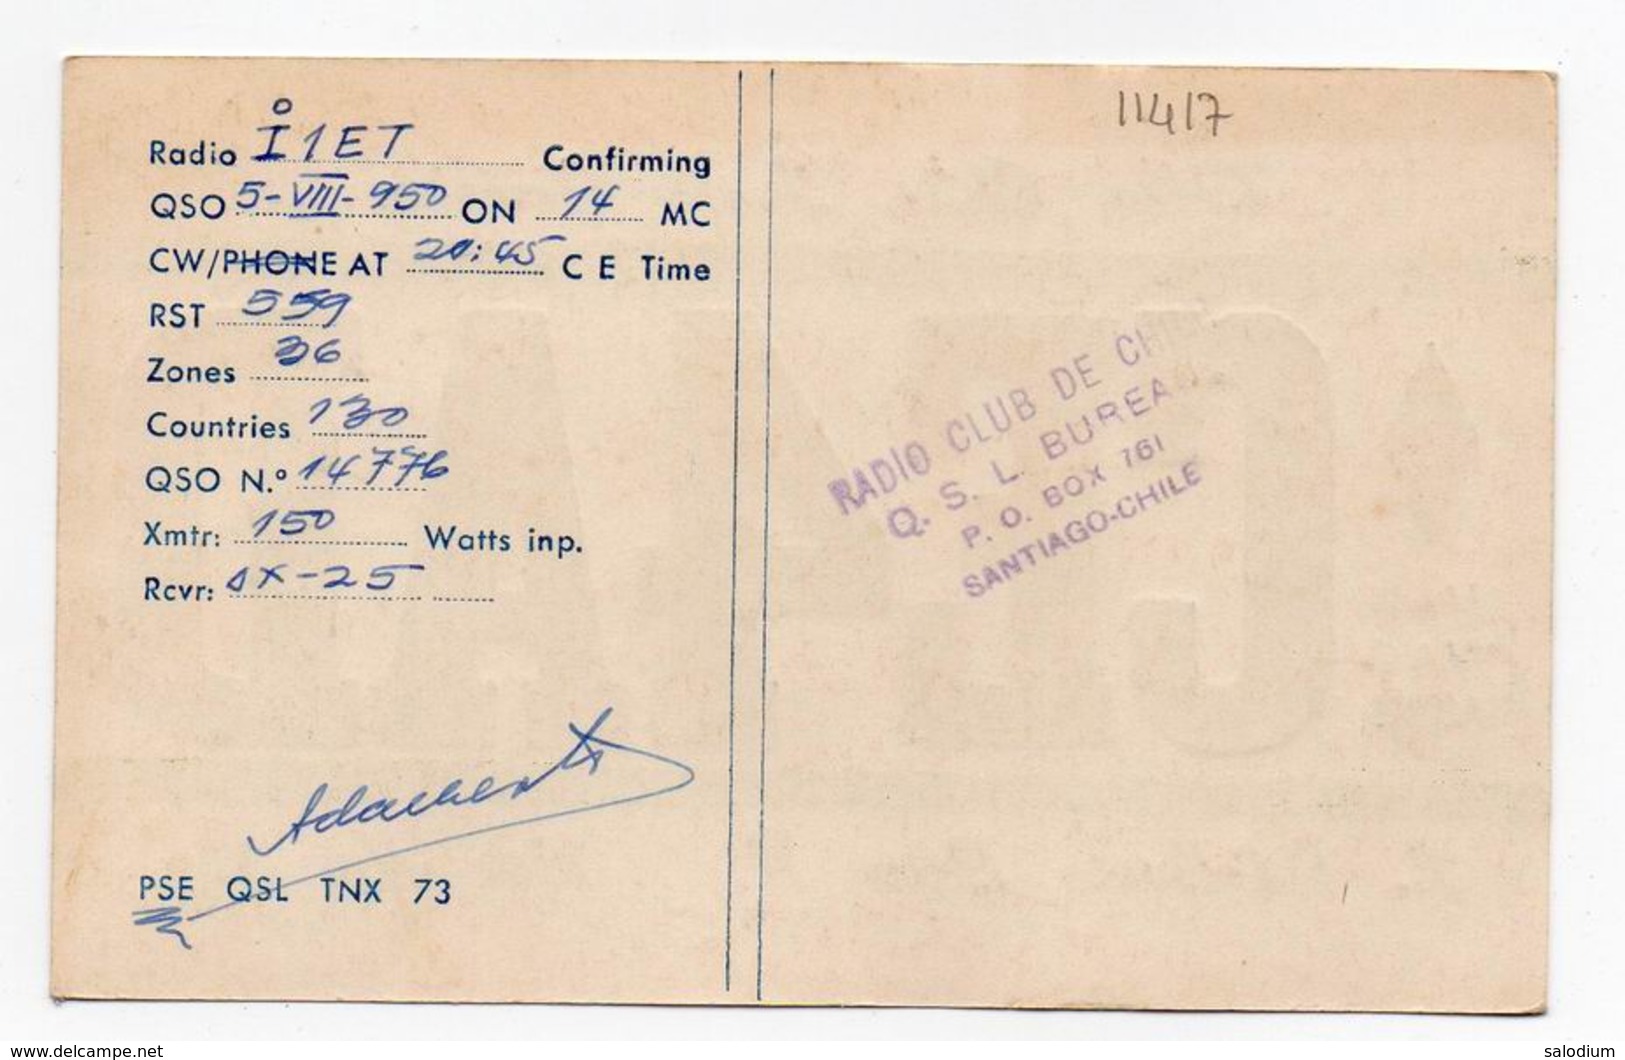 Radio I1ET Confirming
QSO 5-VIII-950 ON 14 MC
CW/PHONE AT 20:45 CE Time
RST 559
Zones 36
Countries 130
QSO N.º 14776
Xmtr: 150 Watts inp.
Rcvr: SX-25
PSE QSL TNX 73
11417
RADIO CLUB DE CHILE
Q. S. L. BUREA
P. O. BOX 761
SANTIAGO-CHILE
www.delcampe.net
salodium